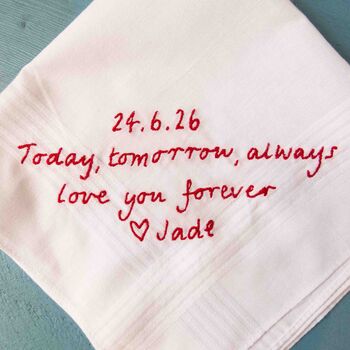 24.6.26
Today, tomorrow, always
love you forever
♡ Jade